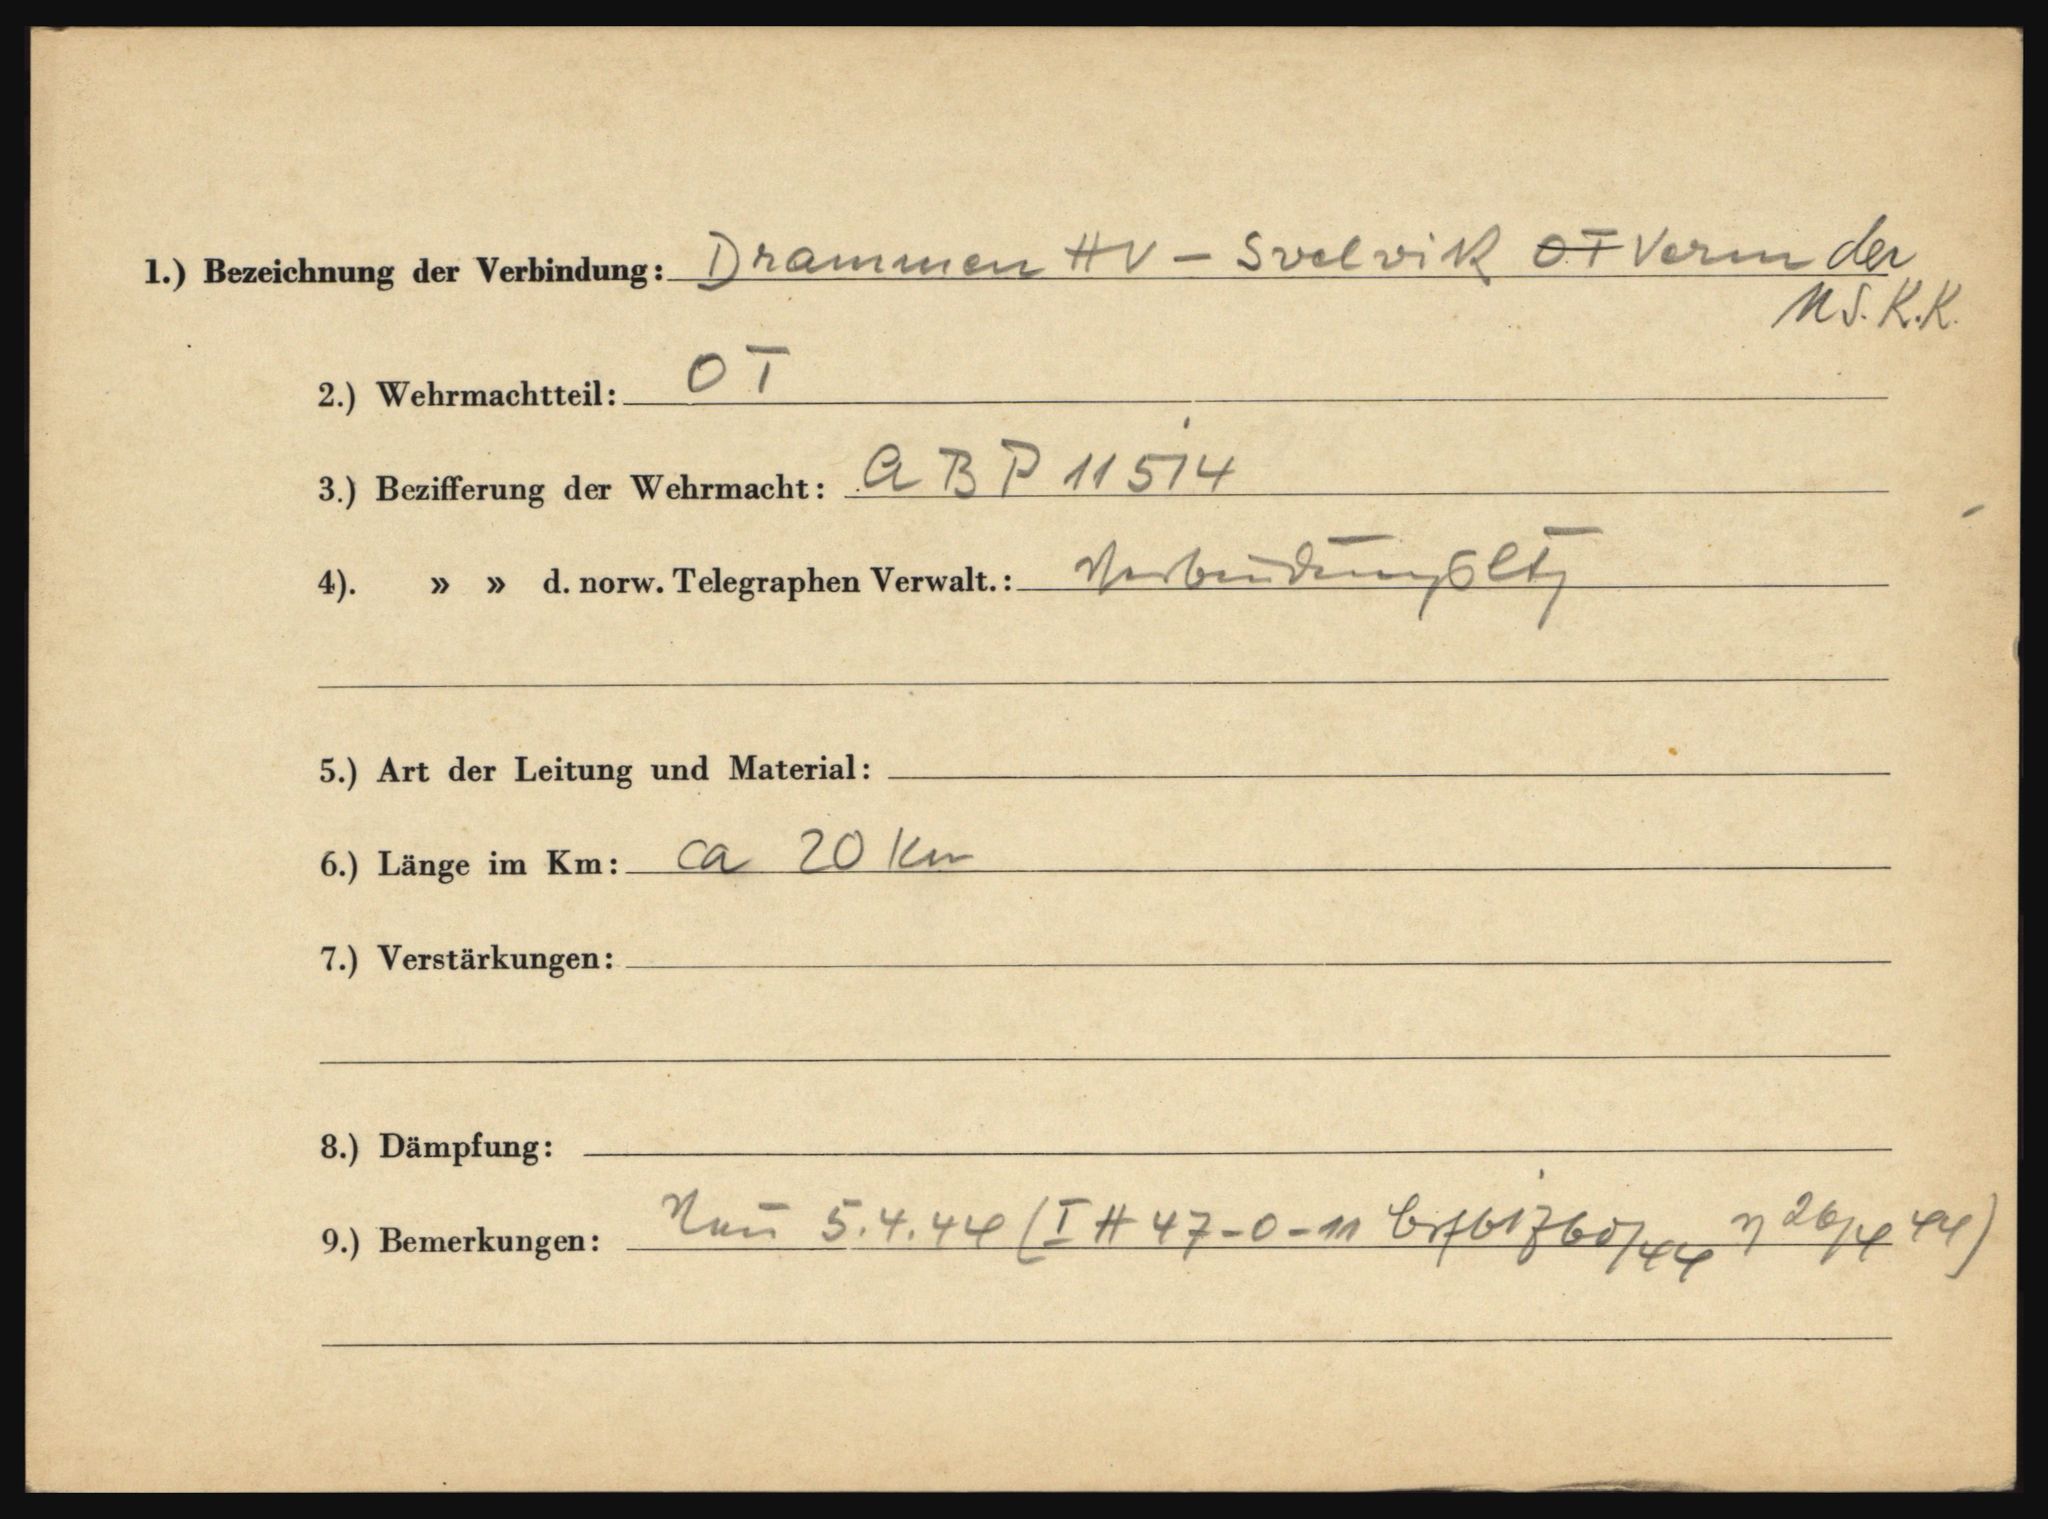 1.) Bezeichnung der Verbindung: Drammen HV – Svelvik OT Verm der
N.S.K.K.
2.) Wehrmachtteil: OT
3.) Bezifferung der Wehrmacht: ABP 11514
4). » » d. norw. Telegraphen Verwalt.: Verbindungsltg
5.) Art der Leitung und Material:
6.) Länge im Km: ca 20 Km
7.) Verstärkungen:
8.) Dämpfung:
9.) Bemerkungen: Neu 5.4.44 (I H 47-0-11 26/4 44)